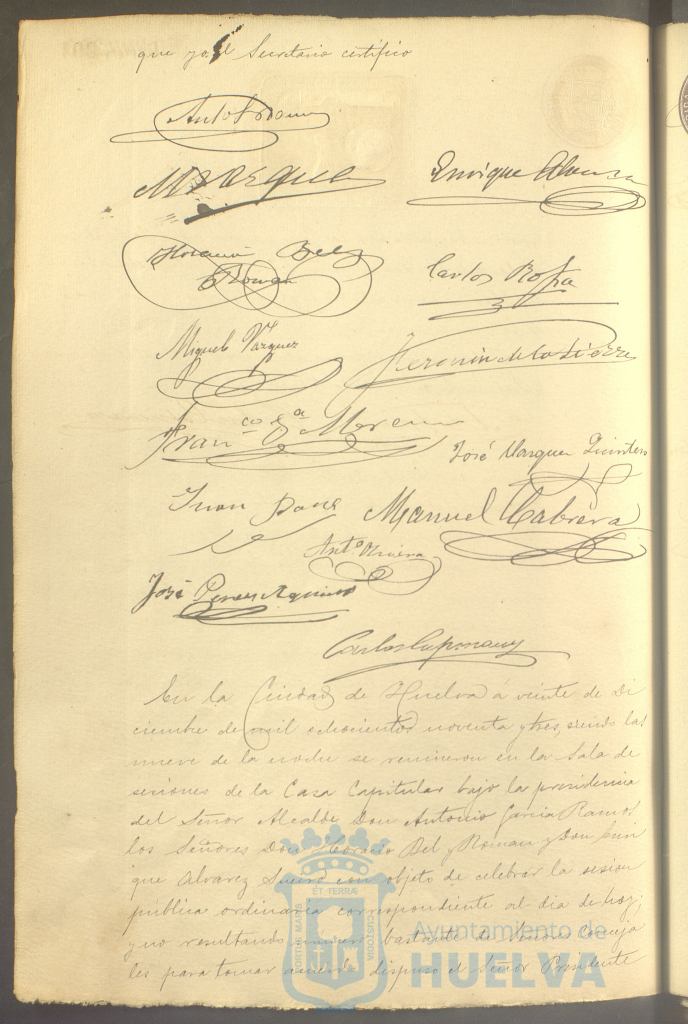 que yo el Secretario certifico
Enrique
Horacio Bel
Roman
Carlos
Miguel Vázquez
Fran.co G.a Moreno
José Vazquez Quintero
Juan
Manuel Cabrera
Ant.o
José Perez
Carlos
En la Ciudad de Huelva á veinte de Di
ciembre de mil ochocientos noventa y tres, siendo las
nueve de la noche se reunieron en la Sala de
sesiones de la Casa Capitular bajo la presidencia
del Señor Alcalde Don Antonio Garcia Ramos
los Señores Don Horacio Bel y Roman y Don Enri
que Alvarez con objeto de celebrar la sesion
pública ordinaria correspondiente al dia de hoy;
y no resultando número bastante de Señores Conceja
les para tomar acuerdo dispuso el Señor Presidente
PORTUS MARIS
ET TERRÆ
CUSTODIA
Ayuntamiento de
HUELVA